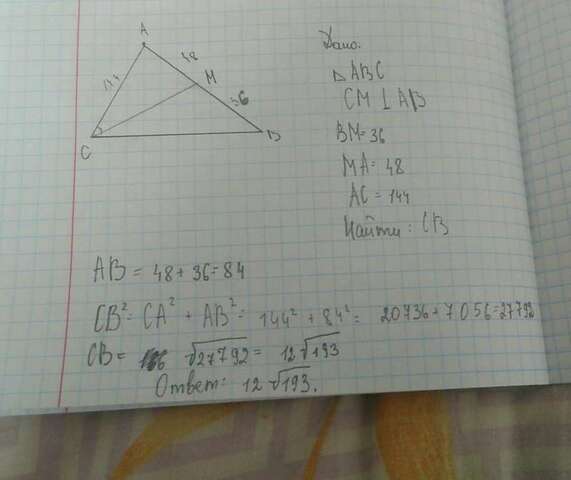 A
48
M
144
36
C
B
Дано:
△ABC
CM ⊥ AB
BM = 36
MA = 48
AC = 144
Найти: CB
AB = 48 + 36 = 84
CB² = CA² + AB² = 144² + 84² = 20736 + 7056 = 27792
CB = √27792 = 12√193
Ответ: 12√193.